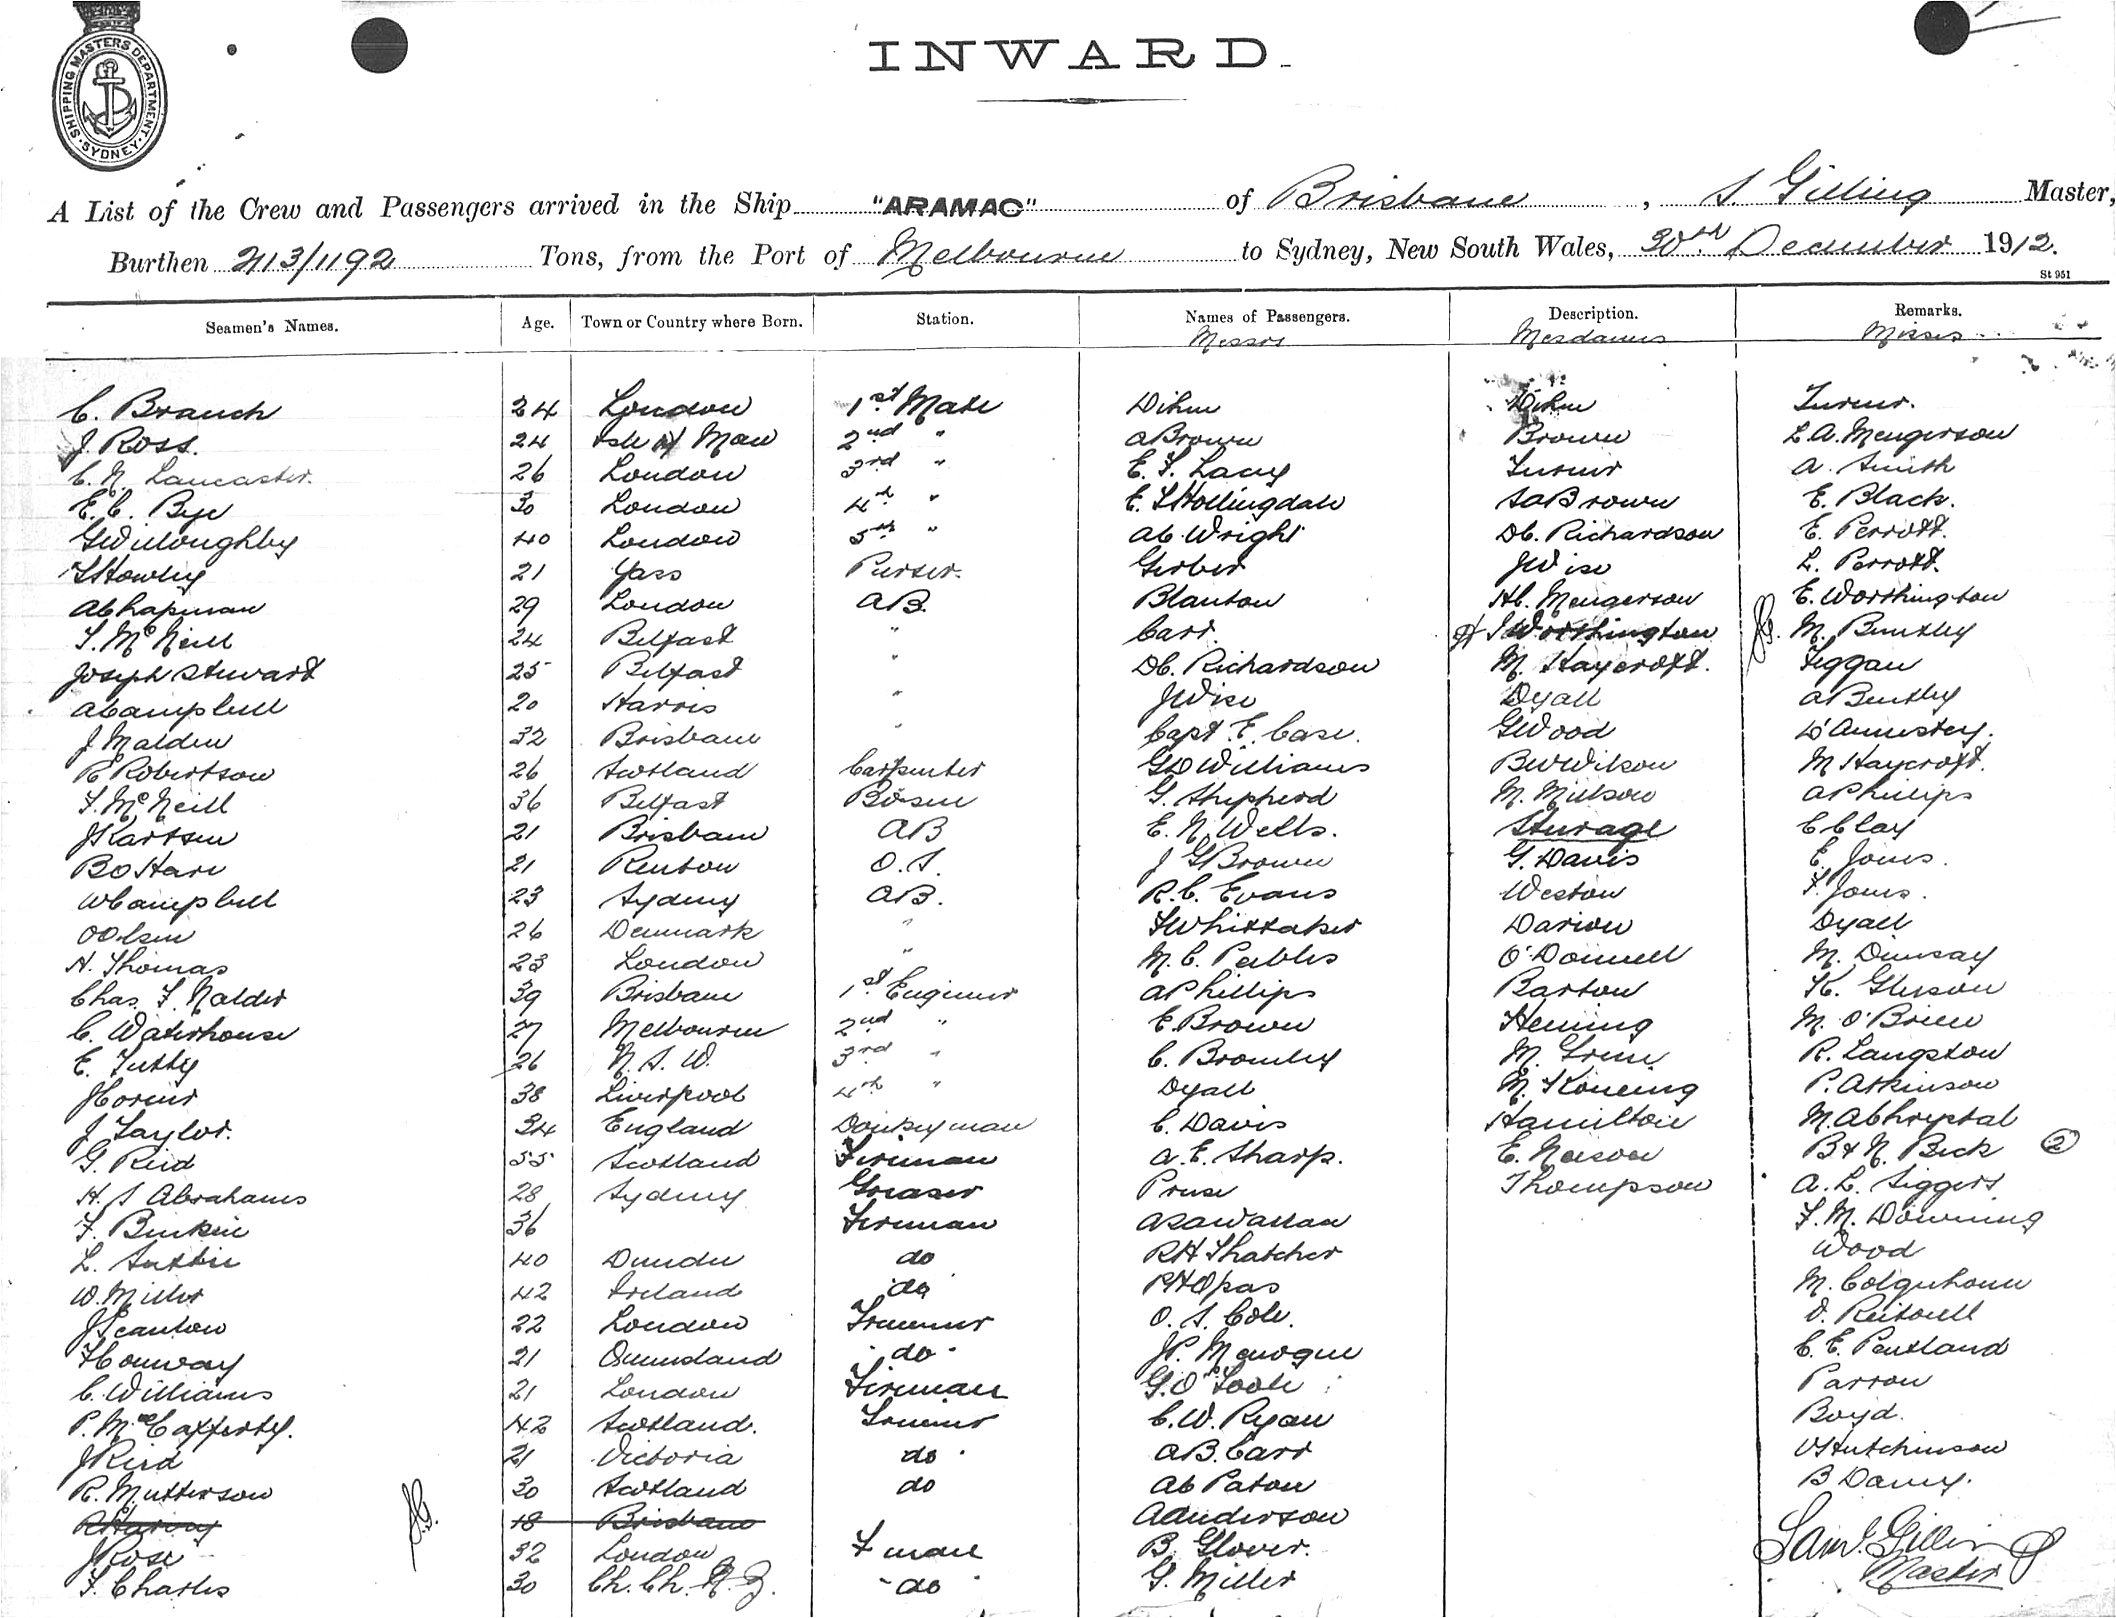 SHIPPING MASTERS DEPARTMENT. SYDNEY.
INWARD.
A List of the Crew and Passengers arrived in the Ship "ARAMAC" of Brisbane, S Gilling Master,
Burthen 2113/1192 Tons, from the Port of Melbourne to Sydney, New South Wales, 30th December 1912.
St 951
Seamen's Names. Age. Town or Country where Born. Station. Names of Passengers. Description. Remarks.
Messrs Mesdames Misses
C. Branch 24 London 1st Mate Dihm Dihm Turner.
J. Ross. 24 Isle of Man 2nd " A Brown Brown L A. Mengerson
C. N. Lancaster. 26 London 3rd " E. F. Lacey Turner A. Smith
E. C. Bye 30 London 4th " E. S Hollingdale S A Brown E. Black.
G Willoughby 40 London 5th " A C Wright D C. Richardson E. Perrott.
S Howley 21 Yass Purser. Gerber J Wise L. Perrott.
A Chapman 29 London A.B. Blanton H C. Mengerson E. Worthington
S. McNeill 24 Belfast " Carr. J Worthington M. Bentley
Joseph Stewart 25 Belfast " D C. Richardson M. Haycroft. Feggan
A Campbell 20 Harris " J Wise Dyall A Bentley
J Malden 32 Brisbane " Capt. E. Case. G Wood D'Annestey.
R Robertson 26 Scotland Carpenter G D Williams B W Wilson M Haycroft.
F. McNeill 36 Belfast Bosun G. Shepherd M. Millson A Phillips
J Kartsen 21 Brisbane AB E. N. Wells. Sturage C Clay
B O Hare 21 Renton O.S. J G Brown G. Davis E. Jones.
W Campbell 23 Sydney A.B. R. C. Evans Weston F. Jones.
O Olsen 26 Denmark " F Whittaker Darion Dyall
H. Thomas 23 London " M. C. Peebles O'Donnell M. Dimsay
Chas. F. Nalder 39 Brisbane 1st Engineer A Phillips Barton K. Gleeson
C. Waterhouse 27 Melbourne 2nd " E. Brown Heming M. O'Brien
E. Tutty 26 N.S.W. 3rd " C. Bromley M. Green R. Langston
J Corner 38 Liverpool 4th " Dyall M. Koneing P. Atkinson
J Taylor. 34 England Donkeyman C. Davis Hamilton M. A Chrystal
G. Reid 55 Scotland Fireman A. E. Sharp. E. Neeson B & N. Beck (2)
H. S Abrahams 28 Sydney Greaser Preuse Thompson A. L. Siggers
F. Binkin 36 Fireman F. M. Downing
L. Suttie 40 Dundee do R H Thatcher Wood
W. Miller 42 Ireland do R H Opas M. Colquhoun
J Scanlon 22 London Trimmer O. S. Cole.
F Conway 21 Queensland do J P. Menogue C. E. Pentland
C. Williams 21 London Fireman G. O'Toole Parron
P. McCafferty. 42 Scotland. Trimmer C. W. Ryan Boyd.
J Reid 21 Victoria do A B. Carr V Hutchinson
R. Mutterson 30 Scotland do A C Paton B Davey.
R Harvey 18 Brisbane A Anderson
J Rose 32 London F man B. Glover. Saml. Gilling
F. Charles 30 Ch. Ch. N. Z. do G. Miller Master